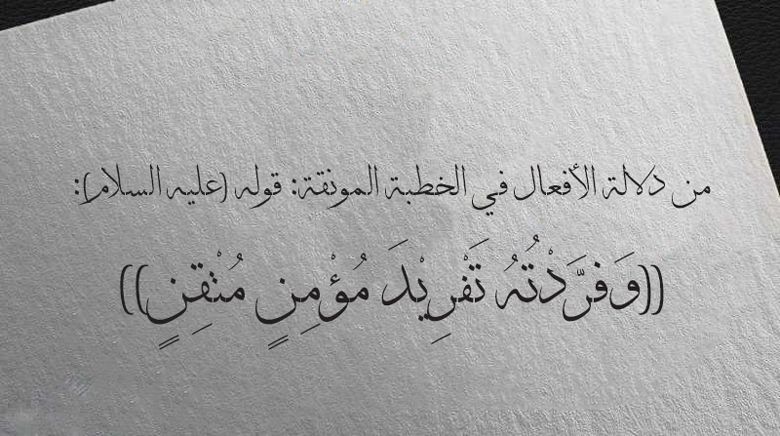 من دلالة الأفعال في الخطبة المونقة: قوله (عليه السلام):
((وَفرَّدْتُهُ تَفْرِيْدَ مُؤْمِنٍ مُتْقِنٍ))